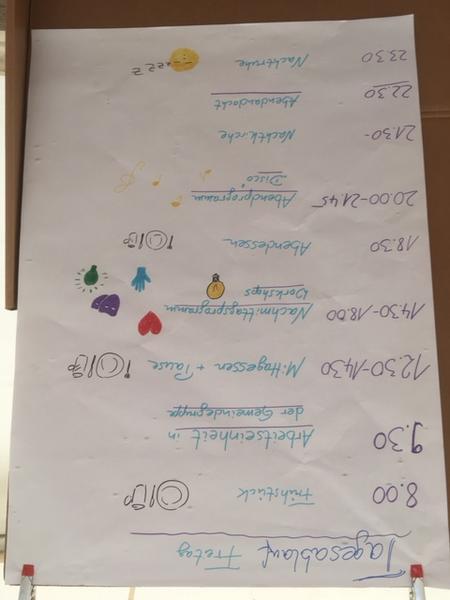 Tagesablauf Freitag
8.00 Frühstück
9.30 Arbeitseinheit in
der Gemeindegruppe
12.30-14.30 Mittagessen + Pause
14.30-18.00 Nachmittagsprogramm
Workshops
18.30 Abendessen
20.00-21.45 Abendprogramm
"Disco"
21.30- Nachtkirche
22.30 Abendandacht
23.30 Nachtruhe zzzZ